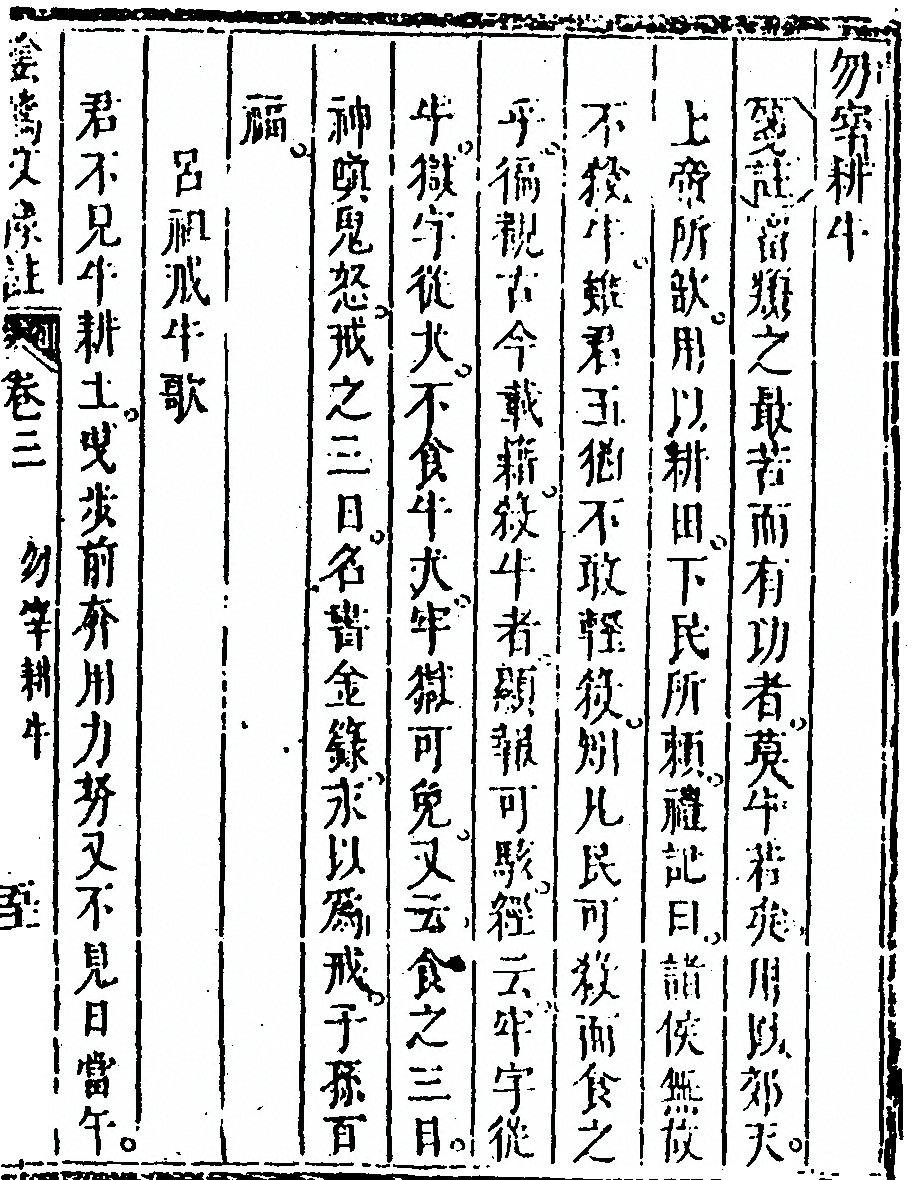 勿宰耕牛
箋註畜類之最苦而有功者。莫牛若矣。用以郊天。
上帝所歆。用以耕田。下民所賴。禮記曰。諸侯無故
不殺牛。雖君王猶不敢輕殺。矧凡民可殺而食之
乎。徧觀古今載籍。殺牛者。顯報可駭。經云。牢字從
牛。獄字從犬。不食牛犬。牢獄可免。又云。食之三日。
神嗔鬼怒。戒之三日。名書金籙。永以爲戒。子孫百
福。
呂祖戒牛歌
君不見牛耕土。曳步前奔用力努又不見日當午。
文廣註 卷三 勿宰耕牛